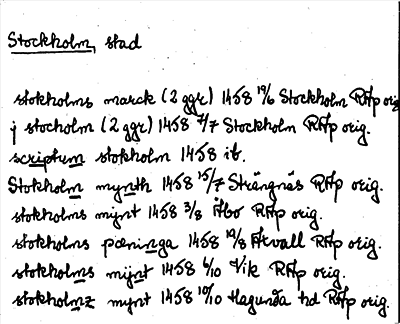 Stockholm, stad
stokholms marck (2 ggr) 1458 19/6 Stockholm RAp orig
j stocholm (2 ggr) 1458 7/7 Stockholm RAp orig.
scriptum stokholm 1458 ib.
Stokholm mynth 1458 15/7 Strängnäs RAp orig.
stokholms mijnt 1458 3/8 Åbo RAp orig.
stokholms pæninga 1458 10/8 Årvall RAp orig.
stokholms mijnt 1458 6/10 Vik RAp orig.
stokholmz mynt 1458 10/10 Hagunda hd RAp orig.